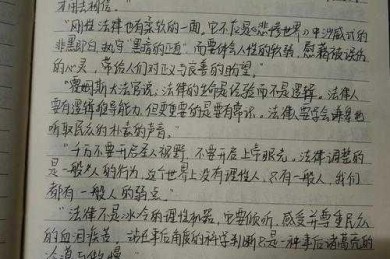 才用去相信。
"刚性法律也有柔软的一面，它不在是《悲惨世界》中沙威式的
非黑即白，执守"黑暗的正直"，而要体会人性的软弱，慰藉被误伤
的心灵，带给人们对正义与良善的盼望。"
"霍姆斯大法官说，法律的生命是经验而不是逻辑。法律人
要有逻辑推导能力，但更重要的是要有常识。法律人要学会谦卑地
听取民众的朴素的声音。"
"千万不要开启圣人视野，不要开启上帝眼光。法律调整的
是一般人的行为，这个世界上没有理性人，只有一般人，我们
都有一般人的弱点。"
"法律不是冰冷的理性机器，它要倾听、感受并尊重民众
的血泪疾苦。站在事后角度的科学判断只是一种事后诸葛亮的
冷漠与傲慢